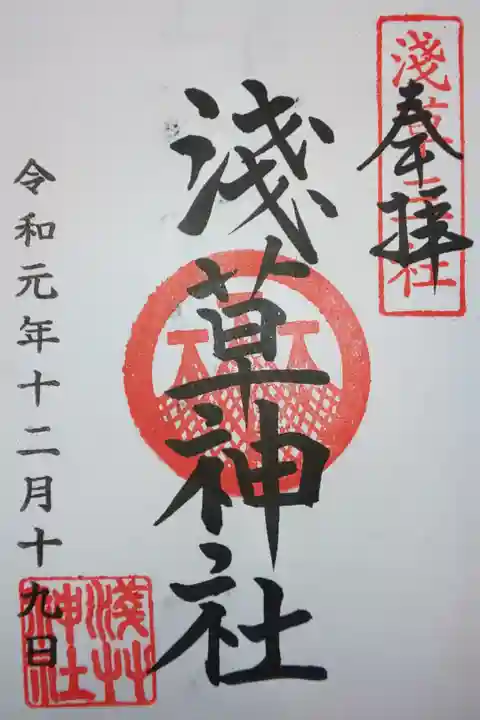 奉拝
淺草神社
淺草神社
令和元年十二月十九日
淺草神社